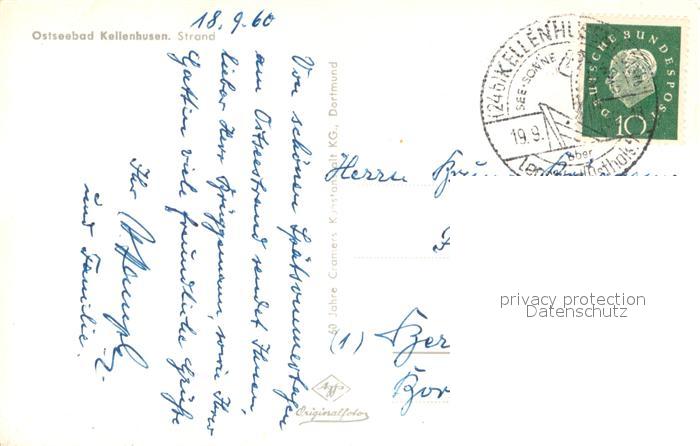 Ostseebad Kellenhusen. Strand
18.9.60
Von schönen Spätsommertagen
am Ostseestrand sendet Ihnen,
lieber Herr Brüggemann, sowie Ihrer
Gattin viele freundliche Grüße
Ihr
und Familie.
40 Jahre Cramers Kunstanstalt KG., Dortmund
Agfa
Originalfoto
(24b) KELLENHUS
SEE-SONNE
19.9.
über
DEUTSCHE BUNDESPOST
10
Herrn
(1) Ber
Bor
privacy protection
Datenschutz